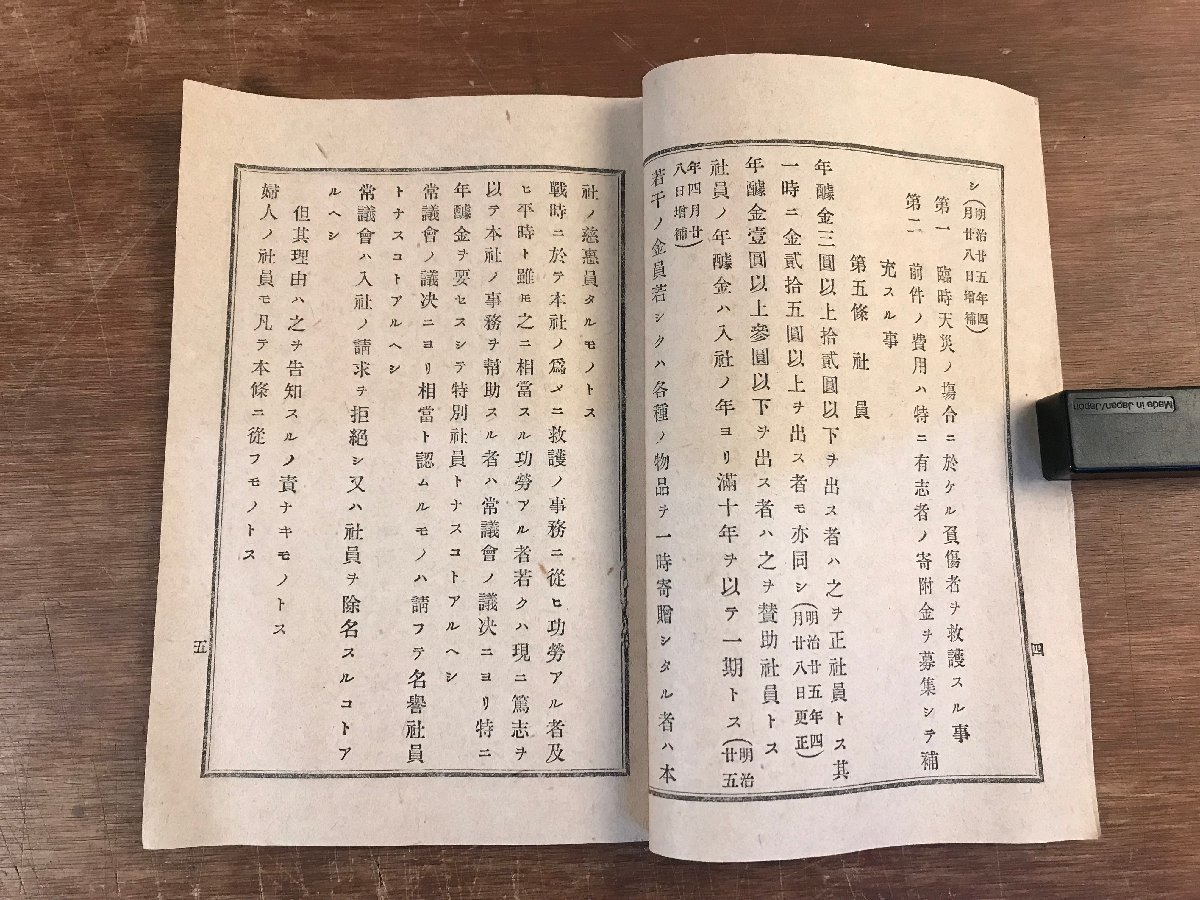 シ(明治廿五年四月廿八日増補)
第一　臨時天災ノ塲合ニ於ケル負傷者ヲ救護スル事
第二　前件ノ費用ハ特ニ有志者ノ寄附金ヲ募集シテ補
充スル事
第五條　社員
年醵金三圓以上拾貳圓以下ヲ出ス者ハ之ヲ正社員トス其
一時ニ金貳拾五圓以上ヲ出ス者モ亦同シ(明治廿五年四月廿八日更正)
年醵金壹圓以上參圓以下ヲ出ス者ハ之ヲ賛助社員トス
社員ノ年醵金ハ入社ノ年ヨリ滿十年ヲ以テ一期トス(明治廿五
年四月廿八日增補)
若干ノ金員若シクハ各種ノ物品ヲ一時寄贈シタル者ハ本
四
社ノ慈惠員タルモノトス
戰時ニ於テ本社ノ爲メニ救護ノ事務ニ從ヒ功勞アル者及
ヒ平時ト雖モ之ニ相當スル功勞アル者若クハ現ニ篤志ヲ
以テ本社ノ事務ヲ幇助スル者ハ常議會ノ議决ニヨリ特ニ
年醵金ヲ要セスシテ特別社員トナスコトアルヘシ
常議會ノ議决ニヨリ相當ト認ムルモノハ請フテ名譽社員
トナスコトアルヘシ
常議會ハ入社ノ請求ヲ拒絕シ又ハ社員ヲ除名スルコトア
ルヘシ
但其理由ハ之ヲ告知スルノ責ナキモノトス
婦人ノ社員モ凡テ本條ニ從フモノトス
五
Made in Japan/Japon